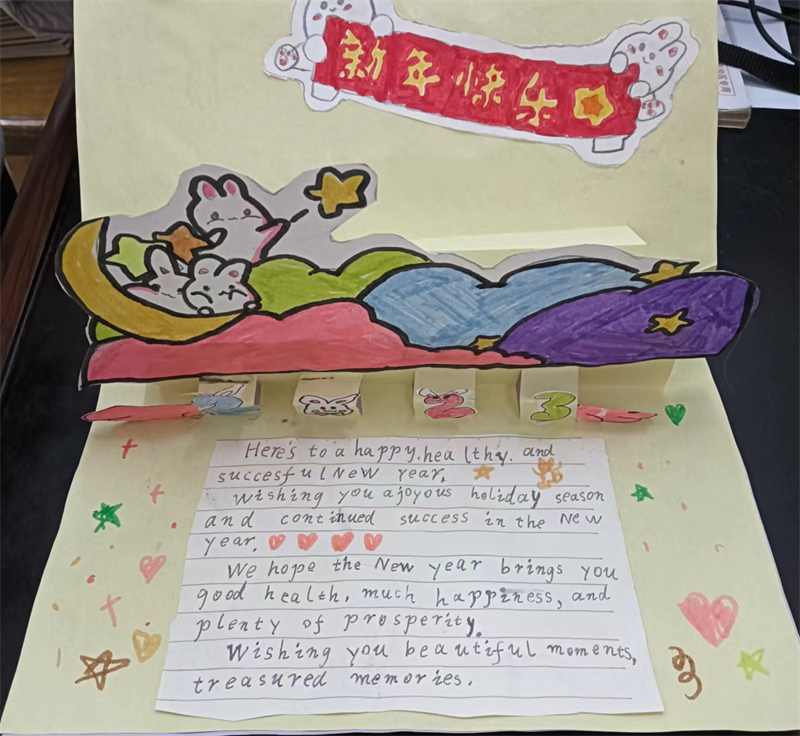 新年快乐
2 3
Here's to a happy, healthy. and
succesful New year.
Wishing you a joyous holiday season
and continued success in the New
year.
We hope the New year brings you
good health, much happiness, and
plenty of prosperity.
Wishing you beautiful moments,
treasured memories.